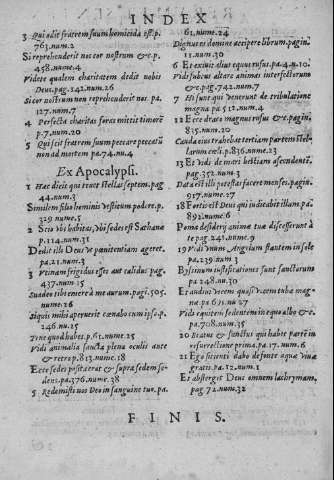 INDEX
3 Qui odit fratrem suum homicida est. p.
763. num. 2
Si reprehenderit nos cor nostrum &c. p.
458. nume. 4
Videte qualem charitatem dedit nobis
Deus. pag. 242. num. 26
Si cor nostrum non reprehenderit nos pa.
127. num. 7
4 Perfecta charitas foras mittit timorē
p. 7. num. 20
5 Qui scit fratrem suum peccare peccatū
non ad mortem pa. 74. nu. 4
Ex Apocalypsi.
1 Hæc dicit qui tenet stellas septem. pag
44. num. 3
Similem filio hominis vestitum podere. p.
329 nume. 5
2 Scio vbi habitas, vbi sedes est Sathanæ
p. 114. num. 31
Dedit illi Deus vt pœnitentiam ageret.
pa. 21. num. 3
3 Vtinam frigidus esses aut calidus pag.
437. num 15
Suadeo tibi emere à me aurum. pagi. 505.
nume. 26
Siquis mihi aperuerit cœnabo cum ipso. p.
246. nu. 25
Tene quod habes. p. 61. nume. 25
Vidi animalia sancta plena oculis ante
& retro p. 813. nume. 18
Ecce sedes posita erat & supra sedem se-
dens. pa. 376. nume. 38
5 Redemisti nos Deo in sanguine tuo. pa.
61. nume. 24
Dignus es domine accipere librum. pagin.
11. num. 30
6 Et exiuit alius equus rufus. pa 44. n. 10.
Vidi subtus altare animas interfectorum
&c. pag. 742. num. 7
7 Hi sunt qui venerunt de tribulatione
magna pa. 512. num. 4
12 Ecce draco magnus rufus &c. pagin.
835. num. 20
Cauda eius trahebat tertiam partem stel-
larum cœli. p. 836. nume. 23
13 Et vidi de mari bestiam ascendentē.
pag. 352 num. 3
Data est illi potestas facere menses. pagin.
917. nume. 27
18 Fortis est Deus qui iudicabit illam. pa.
892. nume. 6
Poma desiderij animæ tuæ discesserunt à
te pag. 241. nume. 9
19 Vidi vnum Angelum stantem in sole
pa. 239. num 3
Byssinum iustificationes sunt sanctorum
pa 248. nu. 30
Et audiui vocem quasi vocem tubæ mag-
næ pa 615. nu 27
Vidi equitem sedentem in equo albo &c.
pa. 708. num. 35
20 Beatus & sanctus qui habet partē in
resurrectione prima. pa. 17. num. 6
21 Ego sitienti dabo defonte aquæ viuæ
gratis. pa. 12. num. 1
Et absterget Deus omnem lachrymam.
pag. 72. num. 32
FINIS.